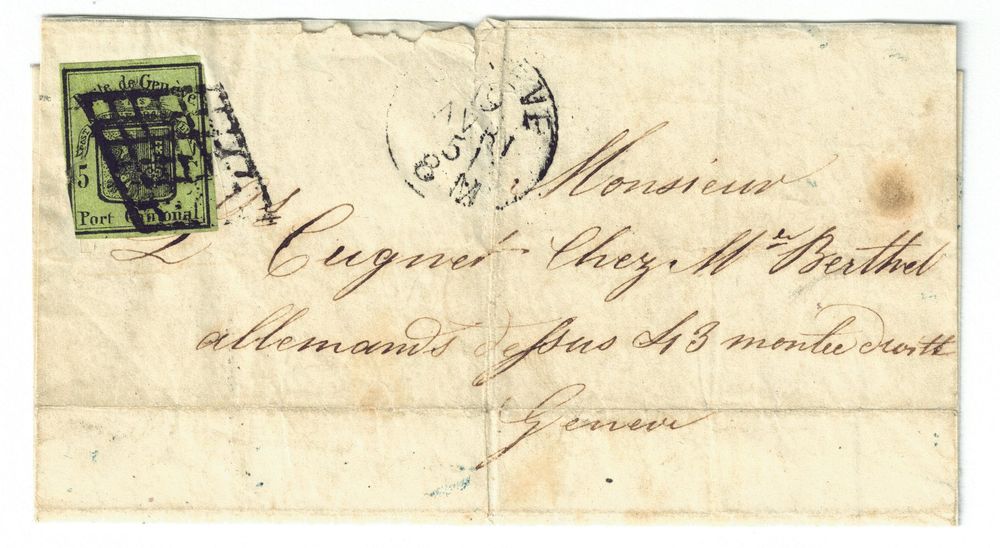 Poste de Genève
5
Port Cantonal
Monsieur
Ls Cugnet Chez Mr Berthet
allemands dessus 43 montée droitte
Geneve